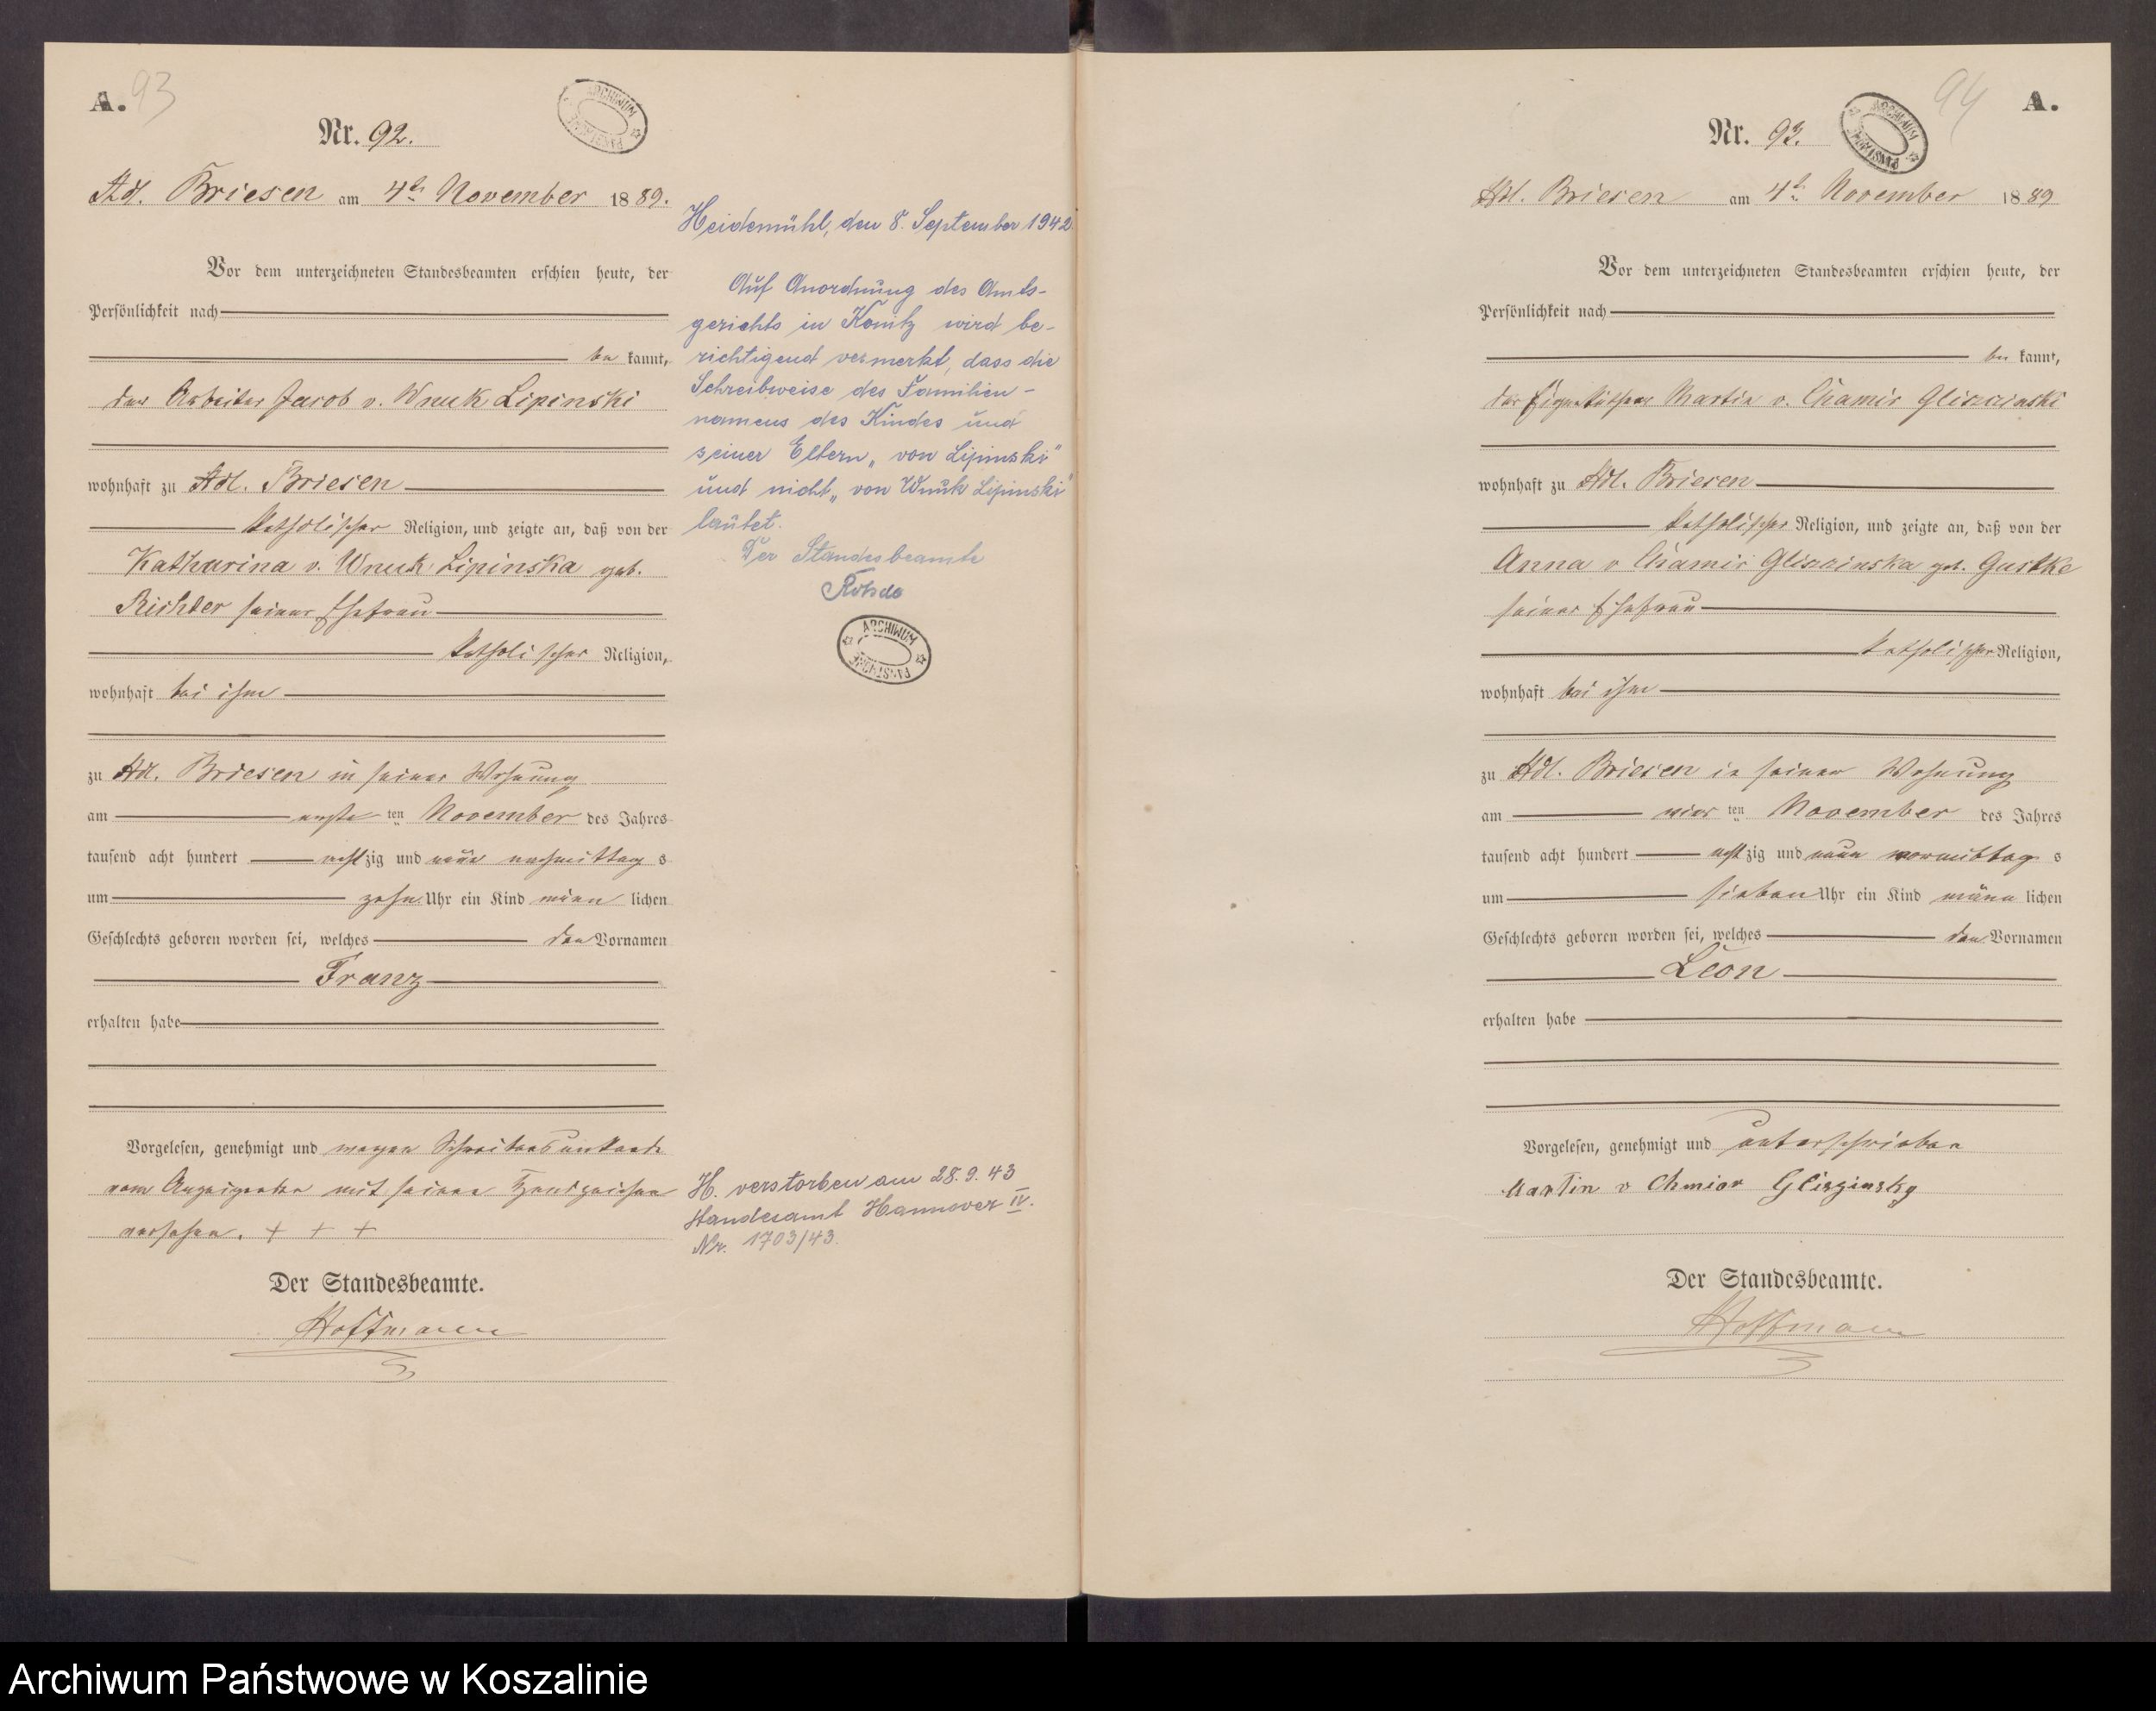 A. 93
Nr. 92.
ARCHIWUM PAŃSTWOWE
Adl. Briesen am 4ten November 1889.
Vor dem unterzeichneten Standesbeamten erschien heute, der
Persönlichkeit nach
be kannt,
der Arbeiter Jacob v. Wnuk Lipinski
wohnhaft zu Adl. Briesen
katholischer Religion, und zeigte an, daß von der
Katharina v. Wnuk Lipinska geb.
Richter seiner Ehefrau
katholischer Religion,
wohnhaft bei ihm
zu Adl. Briesen in seiner Wohnung
am ersten November des Jahres
tausend acht hundert achtzig und neun nachmittags
um zehn Uhr ein Kind männlichen
Geschlechts geboren worden sei, welches den Vornamen
Franz
erhalten habe
Vorgelesen, genehmigt und wegen Schreibensunkunde
vom Anzeigenden mit seinen Handzeichen
versehen. + + +
Der Standesbeamte.
Hoffmann
Heidemühl, den 8. September 1942
Auf Anordnung des Amts-
gerichts in Konitz wird be-
richtigend vermerkt, dass die
Schreibweise des Familien-
namens des Kindes und
seiner Eltern „von Lipinski"
und nicht „von Wnuk Lipinski"
lautet.
Der Standesbeamte
ARCHIWUM PAŃSTWOWE
H. verstorben am 28.9.43
Standesamt Hannover IV.
Nr. 1703/43.
94 A.
Nr. 93.
ARCHIWUM PAŃSTWOWE
Adl. Briesen am 4ten November 1889
Vor dem unterzeichneten Standesbeamten erschien heute, der
Persönlichkeit nach
be kannt,
der Eigenthümer Martin v. Chamir Gliszcinski
wohnhaft zu Adl. Briesen
katholischer Religion, und zeigte an, daß von der
Anna v Chamir Gliszcinska geb. Gustke
seiner Ehefrau
katholischer Religion,
wohnhaft bei ihm
zu Adl. Briesen in seiner Wohnung
am vierten November des Jahres
tausend acht hundert achtzig und neun vormittags
um sieben Uhr ein Kind männlichen
Geschlechts geboren worden sei, welches den Vornamen
Leon
erhalten habe
Vorgelesen, genehmigt und unterschrieben
Martin v Chmior Gliszinsky
Der Standesbeamte.
Hoffmann
Archiwum Państwowe w Koszalinie